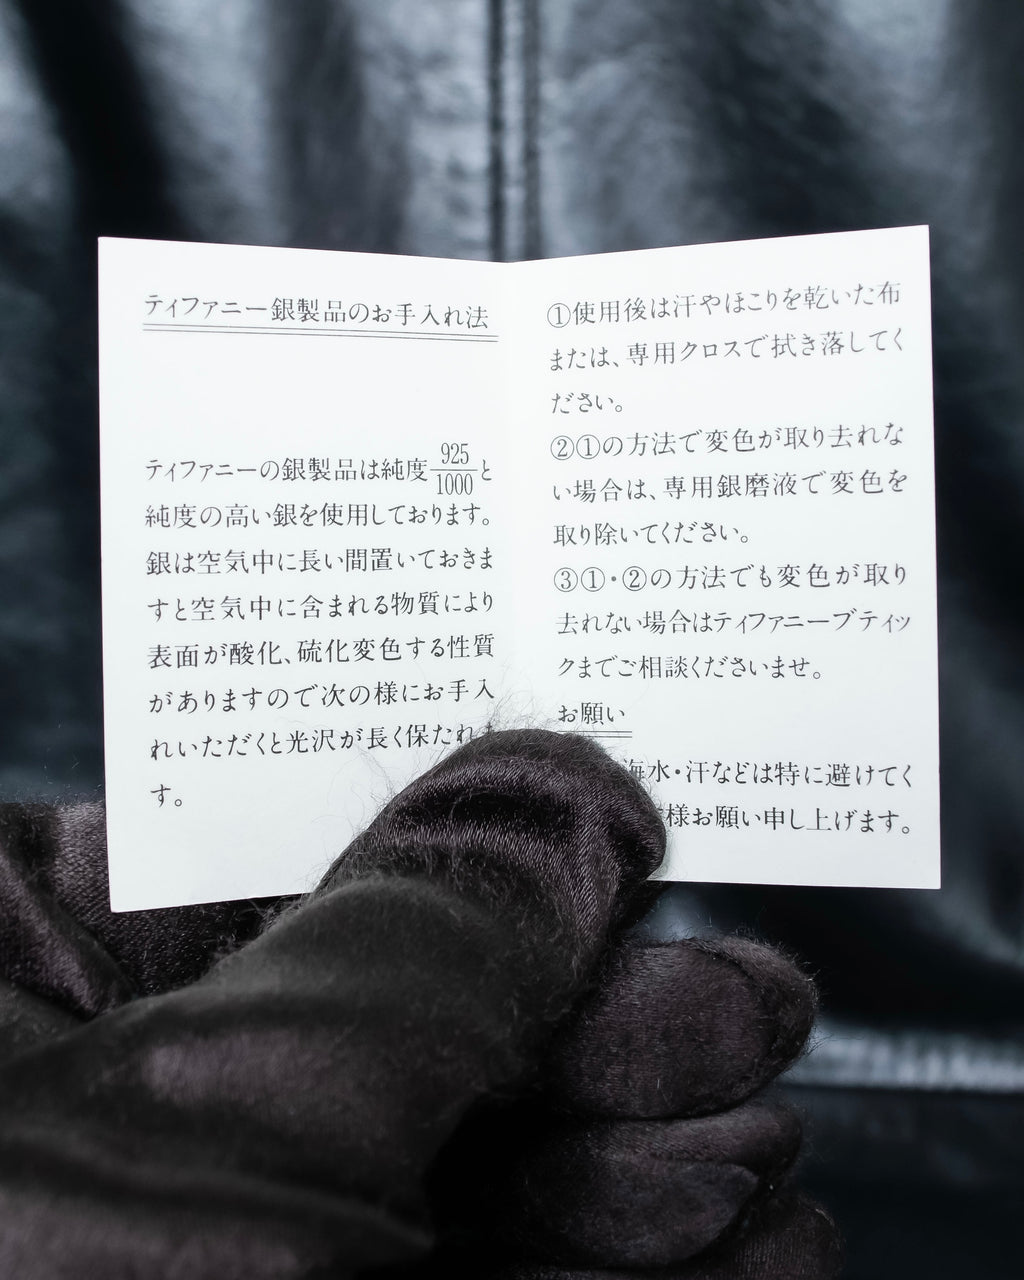 ティファニー銀製品のお手入れ法
ティファニーの銀製品は純度925/1000と
純度の高い銀を使用しております。
銀は空気中に長い間置いておきま
すと空気中に含まれる物質により
表面が酸化、硫化変色する性質
がありますので次の様にお手入
れいただくと光沢が長く保たれま
す。
①使用後は汗やほこりを乾いた布
または、専用クロスで拭き落してく
ださい。
②①の方法で変色が取り去れな
い場合は、専用銀磨液で変色を
取り除いてください。
③①・②の方法でも変色が取り
去れない場合はティファニーブティッ
クまでご相談くださいませ。
お願い
海水・汗などは特に避けてく
様お願い申し上げます。